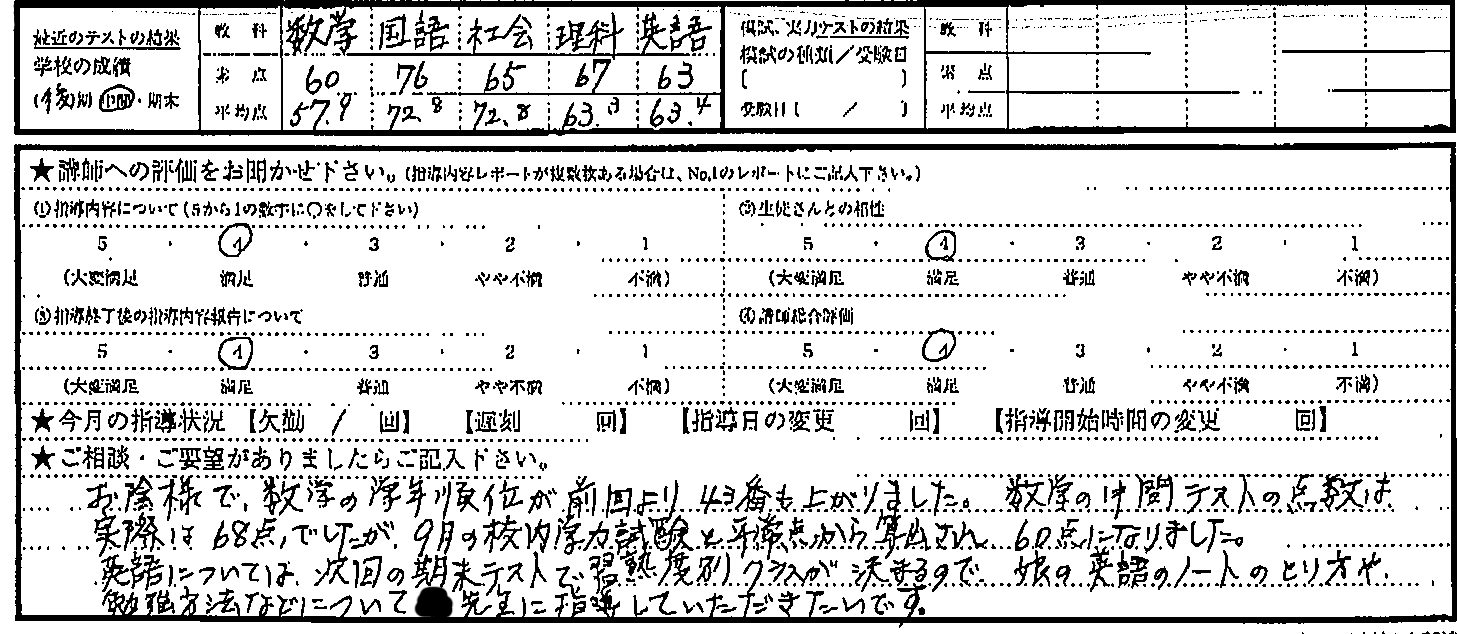 最近のテストの結果
学校の成績
(後)期 中間・期末
教科 数学 国語 社会 理科 英語
素点 60 76 65 67 63
平均点 57.9 72.8 72.8 63.3 63.4
模試、実力テストの結果
模試の種類／受験日
[ ]
受験日[ ／ ]
教科
素点
平均点
★講師への評価をお聞かせ下さい。(指導内容レポートが複数枚ある場合は、No.1のレポートにご記入下さい。)
(1)指導内容について(5から1の数字に〇をして下さい)
5 ・ 4 ・ 3 ・ 2 ・ 1
(大変満足 満足 普通 やや不満 不満)
(2)生徒さんとの相性
5 ・ 4 ・ 3 ・ 2 ・ 1
(大変満足 満足 普通 やや不満 不満)
(3)指導終了後の指導内容報告について
5 ・ 4 ・ 3 ・ 2 ・ 1
(大変満足 満足 普通 やや不満 不満)
(4)講師総合評価
5 ・ 4 ・ 3 ・ 2 ・ 1
(大変満足 満足 普通 やや不満 不満)
★今月の指導状況 【欠勤 / 回】 【遅刻 回】 【指導日の変更 回】 【指導開始時間の変更 回】
★ご相談・ご要望がありましたらご記入下さい。
お陰様で、数学の学年順位が前回より43番も上がりました。数学の中間テストの点数は
実際は68点でしたが、9月の校内学力試験と平常点から算出され、60点になりました。
英語については、次回の期末テストで習熟度別クラスが決まるので、娘の英語のノートのとり方や、
勉強方法などについて 先生に指導していただきたいです。